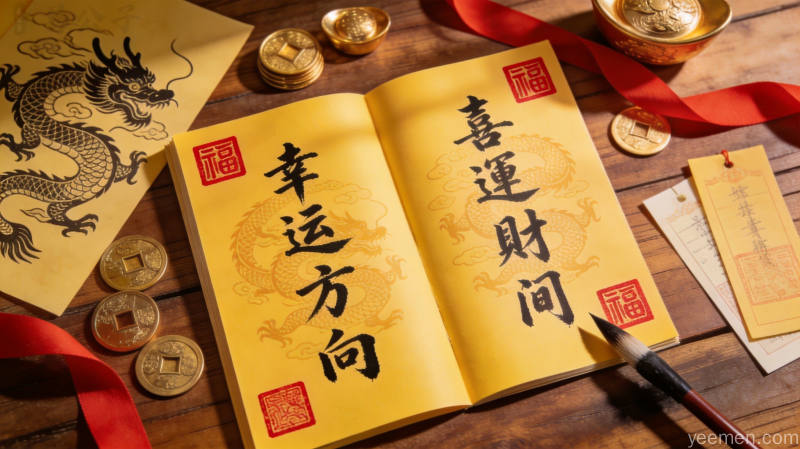 福
幸运方向
福
喜運財间
福
yeemen.com